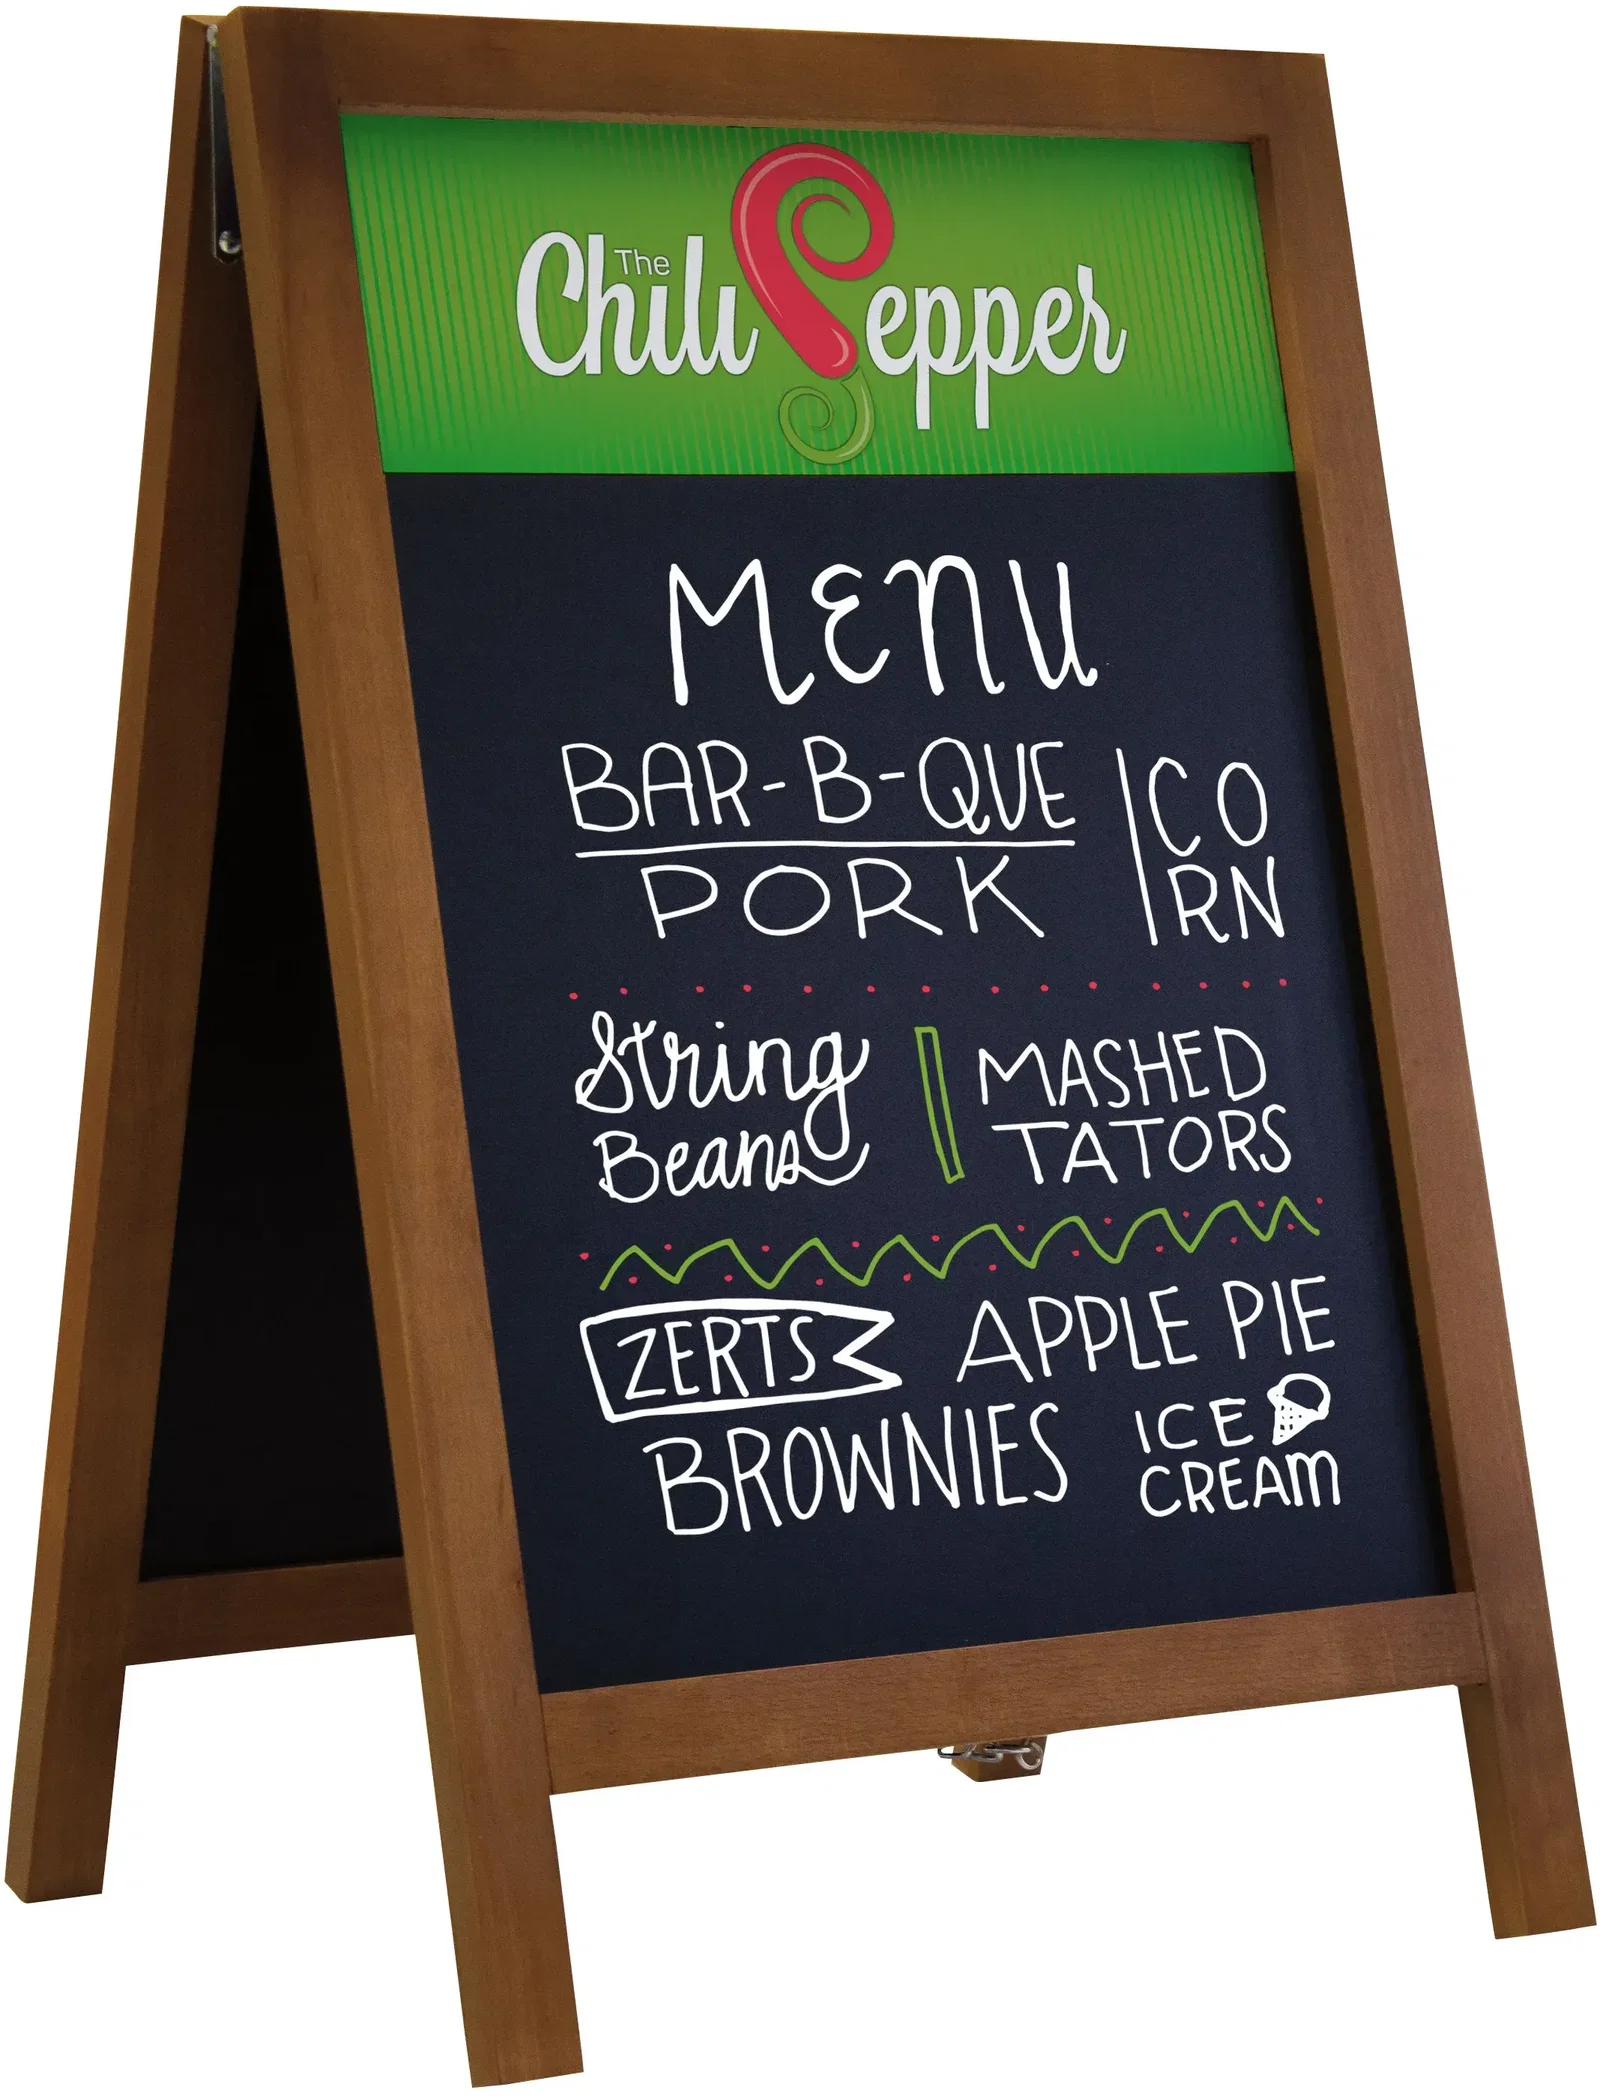 The
Chili Pepper
MENU
BAR-B-QUE
PORK
CO
RN
String
Beans
MASHED
TATORS
ZERTS
APPLE PIE
BROWNIES
ICE
CREAM